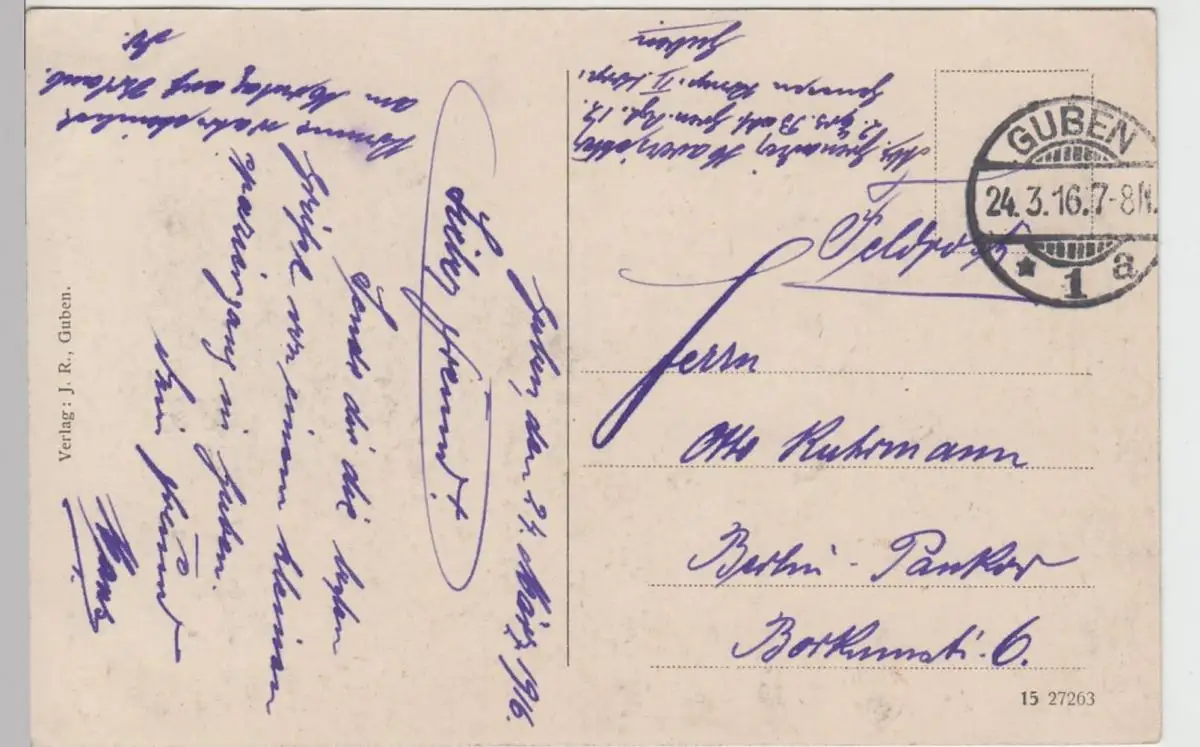 Guben, den 24. März 1916.
Lieber Freund!
Sende dir die besten
Grüße von einem kleinen
spaziergang in Guben.
Dein Freund
Hans
Komme wahrscheinlich
am Montag auf Urlaub.
Abs. Grenadier
2. Ers. Batl. Gren. Rgt. 12.
Genesen. Komp. II. Korp.
Guben
GUBEN
24.3.16.7-8N.
* 1 a
Feldpost
Herrn
Otto Kuhrmann
Berlin-Pankow
Borkumstr. 6.
Verlag: J. R., Guben.
15 27263